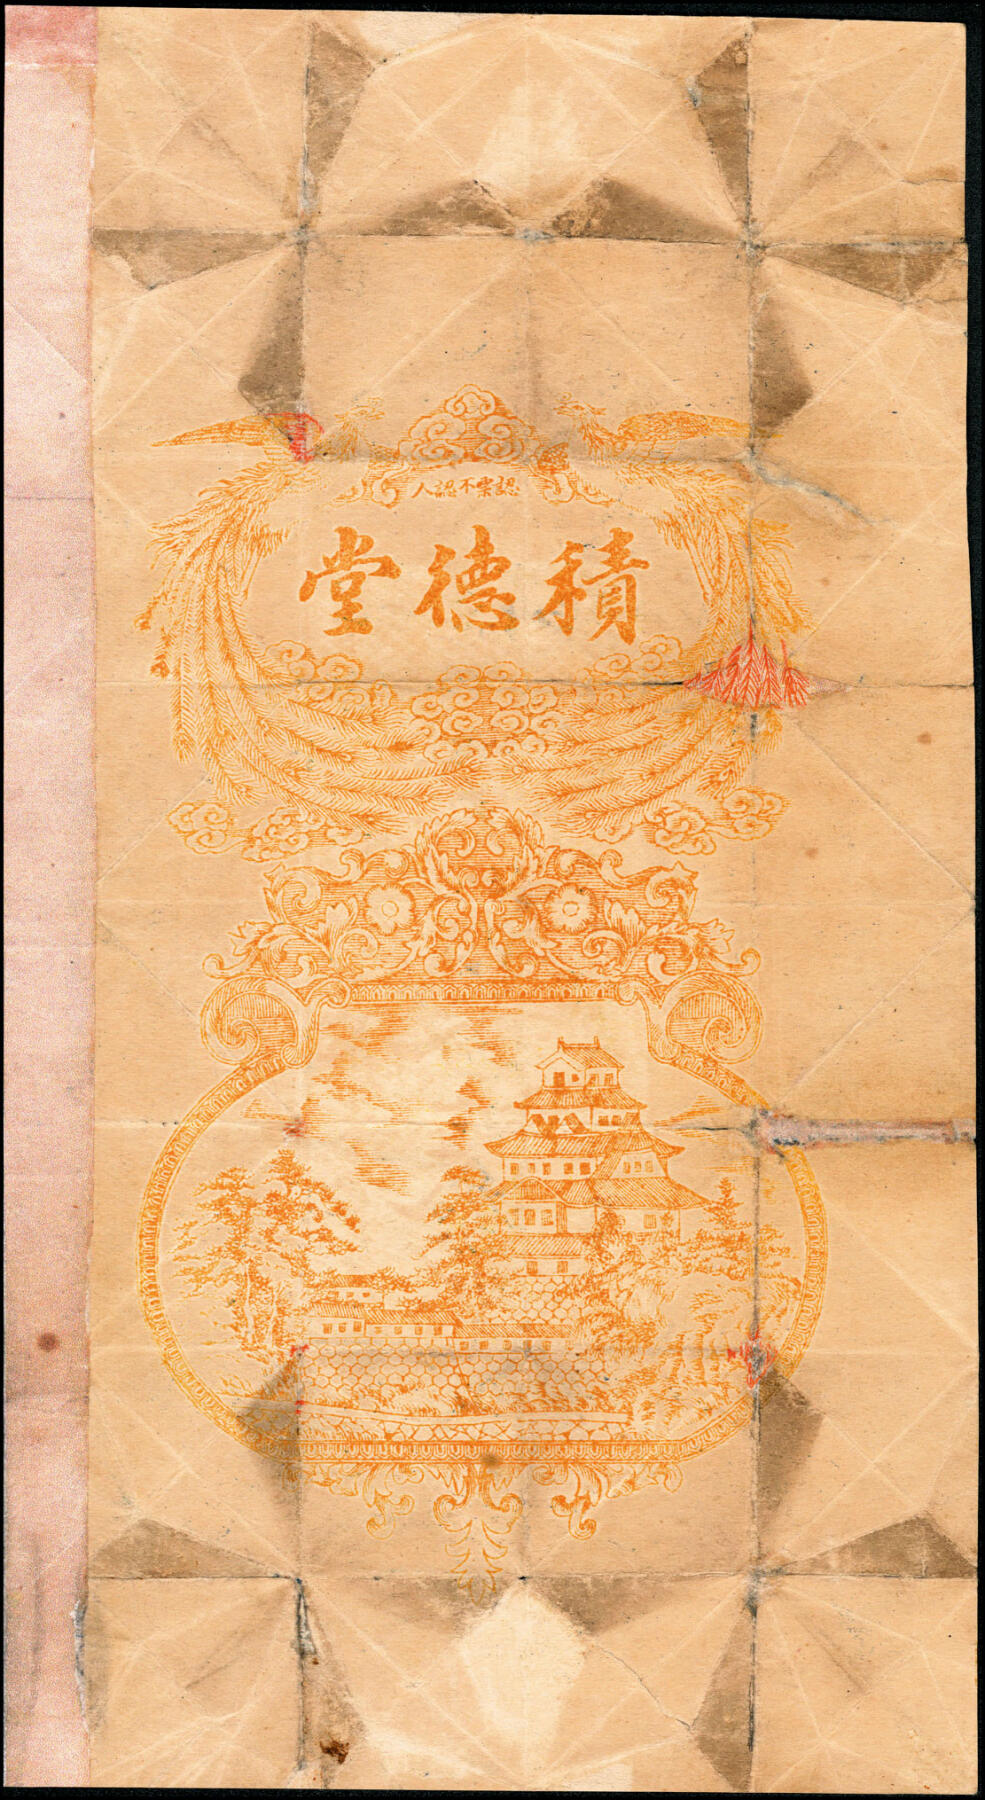 認票不認人
積德堂